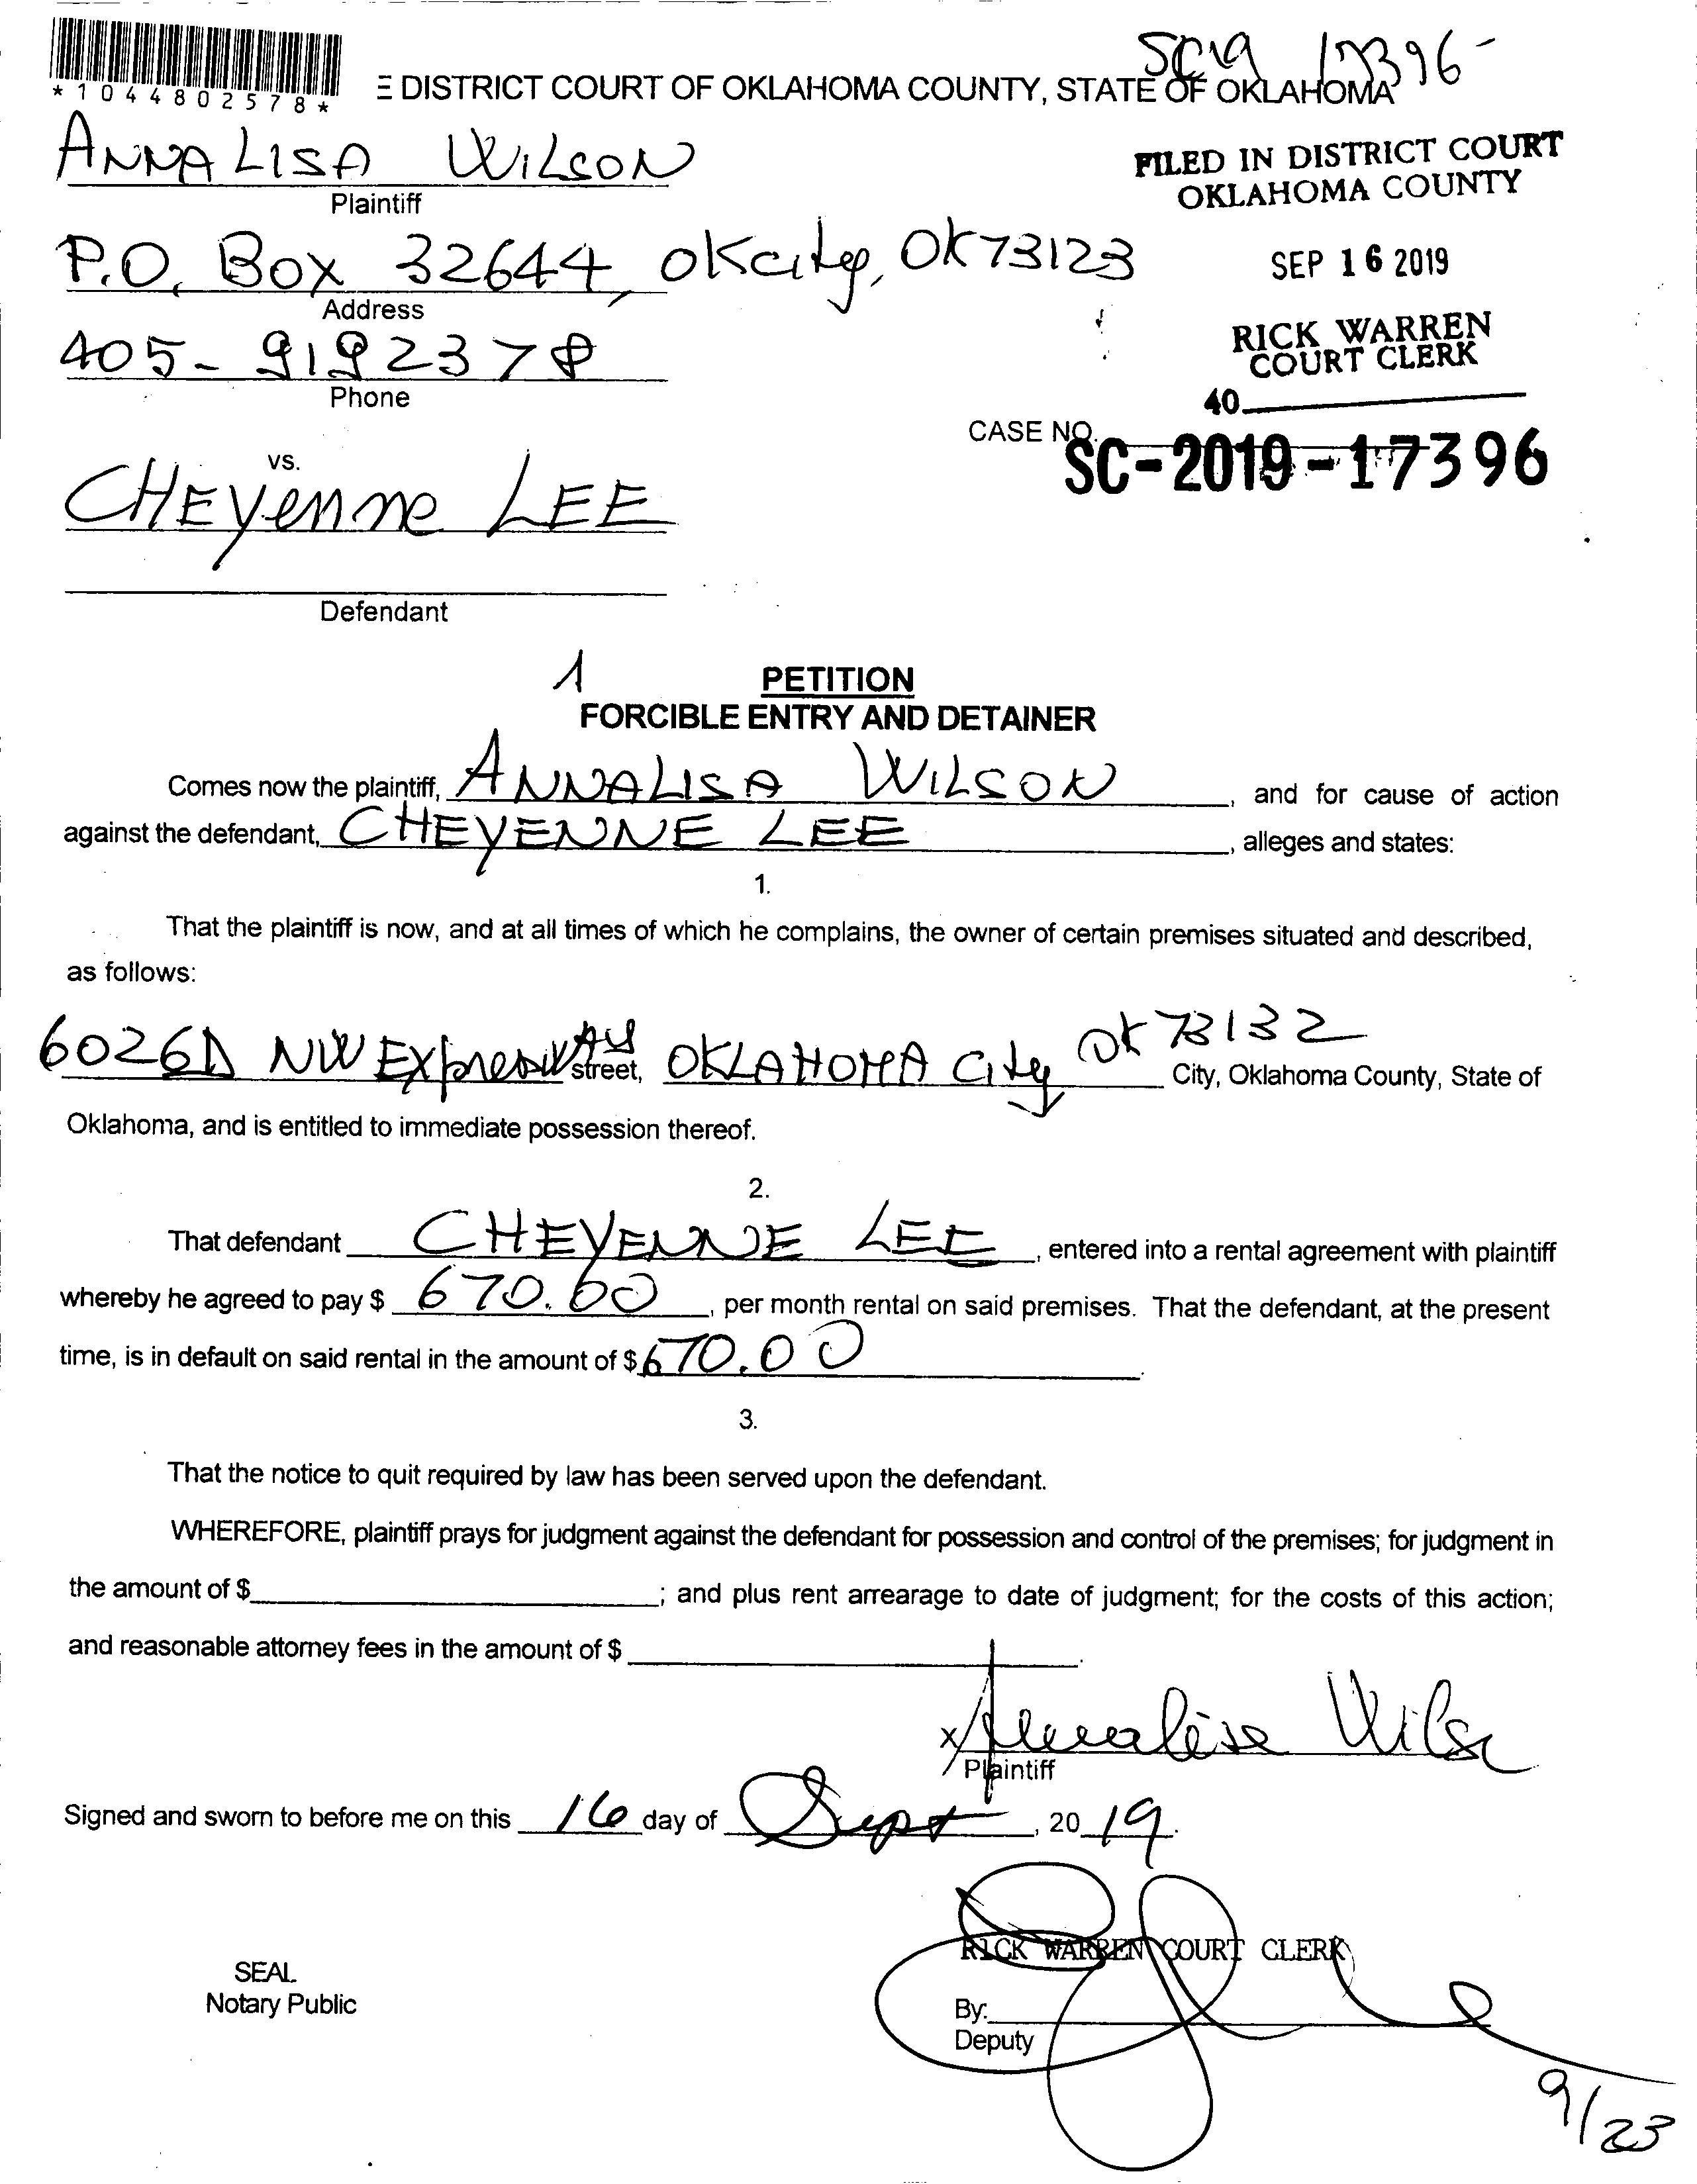 SC19 17396-
*1044802578*
E DISTRICT COURT OF OKLAHOMA COUNTY, STATE OF OKLAHOMA
ANNALISA WILSON
Plaintiff
FILED IN DISTRICT COURT
OKLAHOMA COUNTY
P.O. Box 32644, OKcity, OK 73123
Address
SEP 16 2019
405-9192378
Phone
RICK WARREN
COURT CLERK
40
CASE NO.
SC-2019-17396
vs.
CHEyenne LEE
Defendant
1
PETITION
FORCIBLE ENTRY AND DETAINER
Comes now the plaintiff, ANNALISA WILSON, and for cause of action
against the defendant, CHEYENNE LEE, alleges and states:
1.
That the plaintiff is now, and at all times of which he complains, the owner of certain premises situated and described,
as follows:
6026D NW Expressway street, OKLAHOMA City OK 73132 City, Oklahoma County, State of
Oklahoma, and is entitled to immediate possession thereof.
2.
That defendant CHEYENNE LEE, entered into a rental agreement with plaintiff
whereby he agreed to pay $ 670.00, per month rental on said premises. That the defendant, at the present
time, is in default on said rental in the amount of $ 670.00.
3.
That the notice to quit required by law has been served upon the defendant.
WHEREFORE, plaintiff prays for judgment against the defendant for possession and control of the premises; for judgment in
the amount of $ ; and plus rent arrearage to date of judgment; for the costs of this action;
and reasonable attorney fees in the amount of $ .
x Annalisa Wilson
Plaintiff
Signed and sworn to before me on this 16 day of Sept, 2019.
RICK WARREN COURT CLERK
SEAL
Notary Public
By:
Deputy
9/23